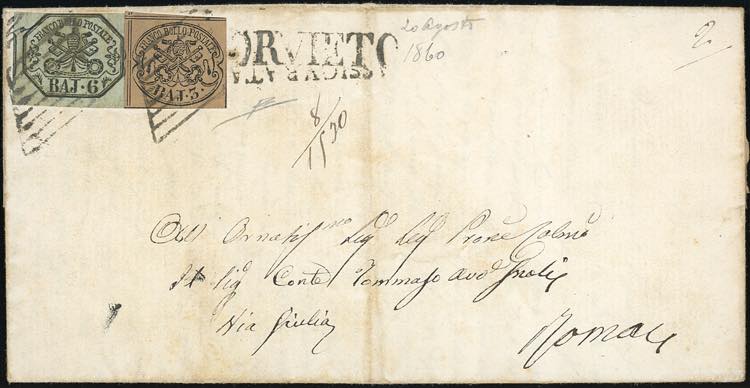 FRANCO BOLLO POSTALE
BAJ·6
FRANCO BOLLO POSTALE
BAJ·3
ORVIETO
ASSICVRATA
20 Agosto
1860
2
8
1520
All' Ornatiss mo Sig Sig Prone Colmo
Il Sig Conte Tommaso Avv
Via Giulia
Roma